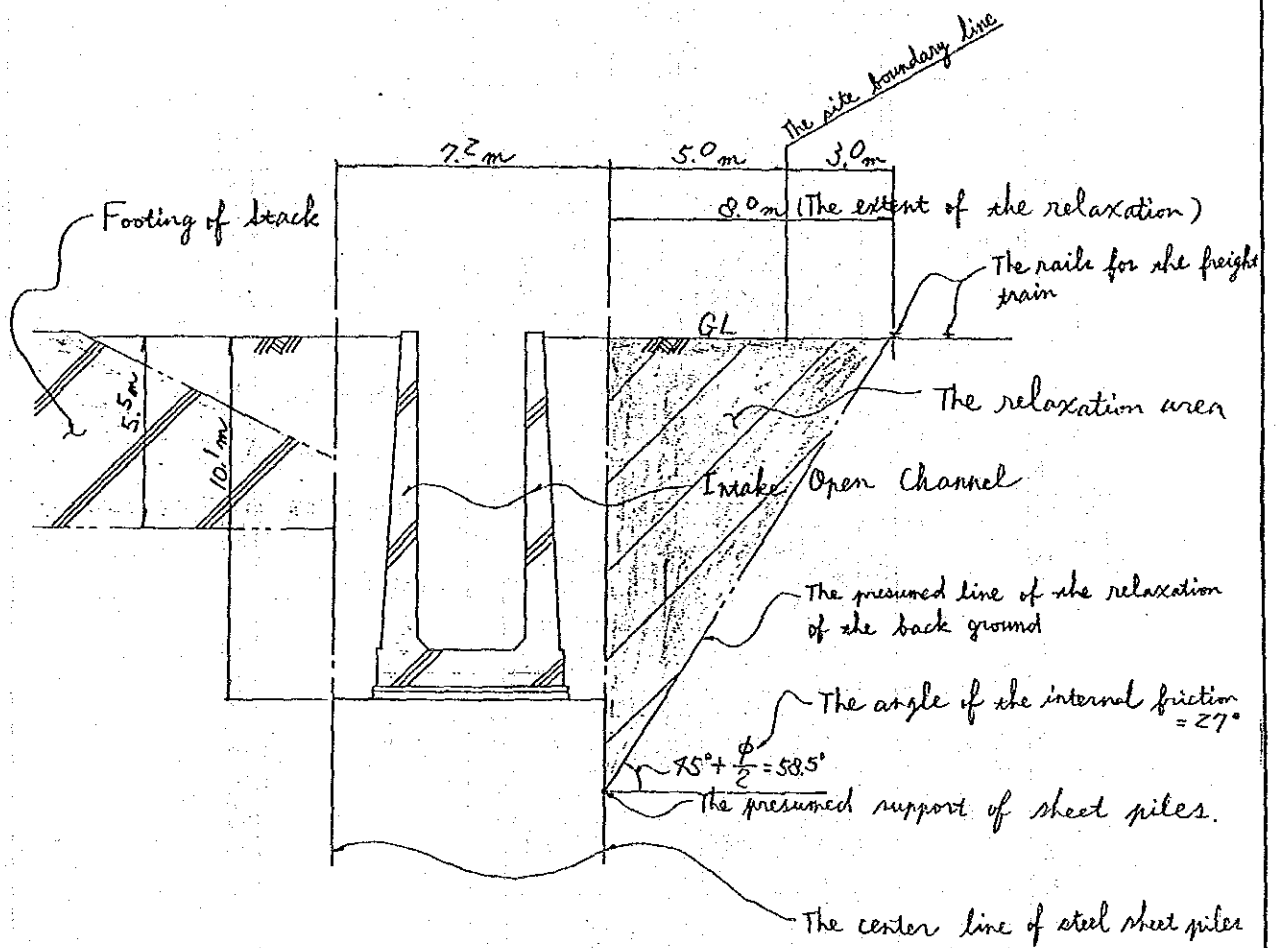 The site boundary line
7.2m
5.0m
3.0m
8.0m (The extent of the relaxation)
Footing of stack
The rails for the freight
train
GL
5.5m
10.1m
The relaxation area
Intake Open Channel
The presumed line of the relaxation
of the back ground
The angle of the internal friction
= 27°
45° + φ/2 = 58.5°
The presumed support of sheet piles.
The center line of steel sheet piles